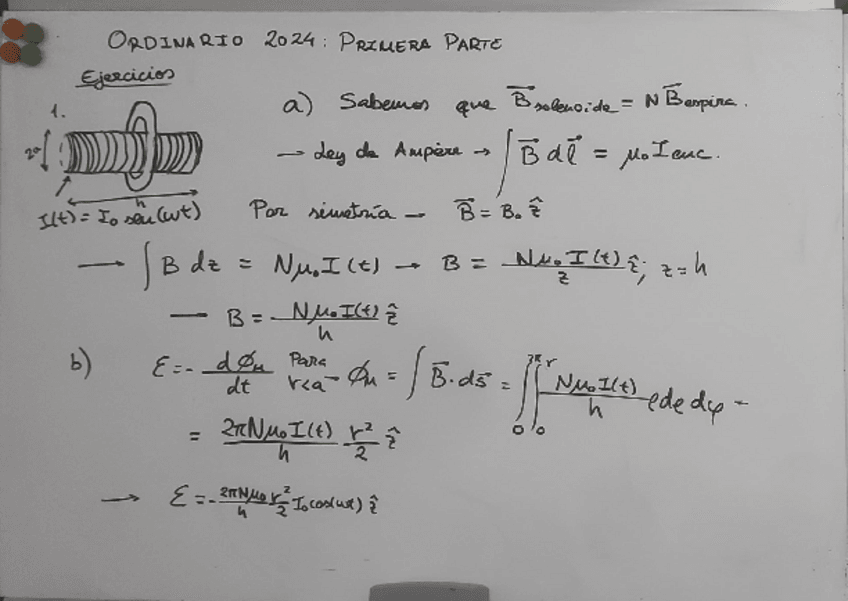 ORDINARIO 2024: PRIMERA PARTE
Ejercicios
1.
2a
h
I(t) = I₀ sen(ωt)
a) Sabemos que B⃗solenoide = N B⃗espira.
→ Ley de Ampère → ∫ B⃗ dl⃗ = μ₀ I enc.
Por simetría → B⃗ = B₀ ẑ
→ ∫ B dz = Nμ₀I(t) → B = Nμ₀I(t)/z ẑ; z = h
→ B = Nμ₀I(t)/h ẑ
b) ε = - dØ_M/dt Para r<a → Ø_M = ∫ B⃗·ds⃗ = ∫₀^2π ∫₀^r Nμ₀I(t)/h ρdρ dφ =
= 2πNμ₀I(t)/h r²/2 ẑ
→ ε = - 2πNμ₀/h r²/2 I₀ cos(ωt) ẑ